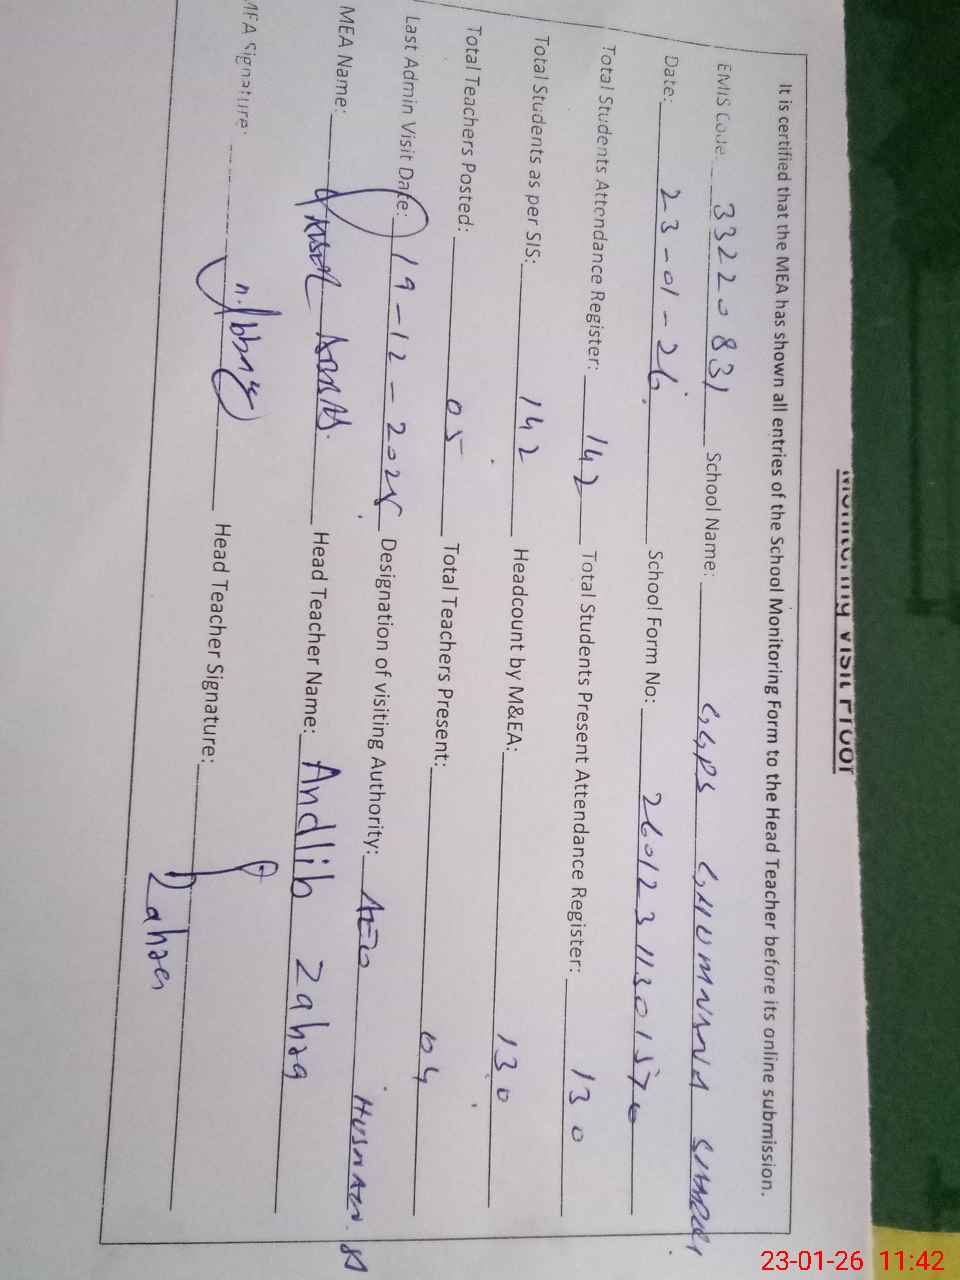 Monitoring Visit Proof
It is certified that the MEA has shown all entries of the School Monitoring Form to the Head Teacher before its online submission.
EMIS Code: 33220831 School Name: GGPS GHUMNANA SHARQI
Date: 23-01-26 School Form No:
Total Students Attendance Register: 142 Total Students Present Attendance Register: 130
Total Students as per SIS: 142 Headcount by M&EA: 130
Total Teachers Posted: 05 Total Teachers Present: 04
Last Admin Visit Date: 19-12-2025 Designation of visiting Authority: AEO
MEA Name: Head Teacher Name: Andlib Zahra
MEA Signature: Head Teacher Signature: Zahra
23-01-26 11:42